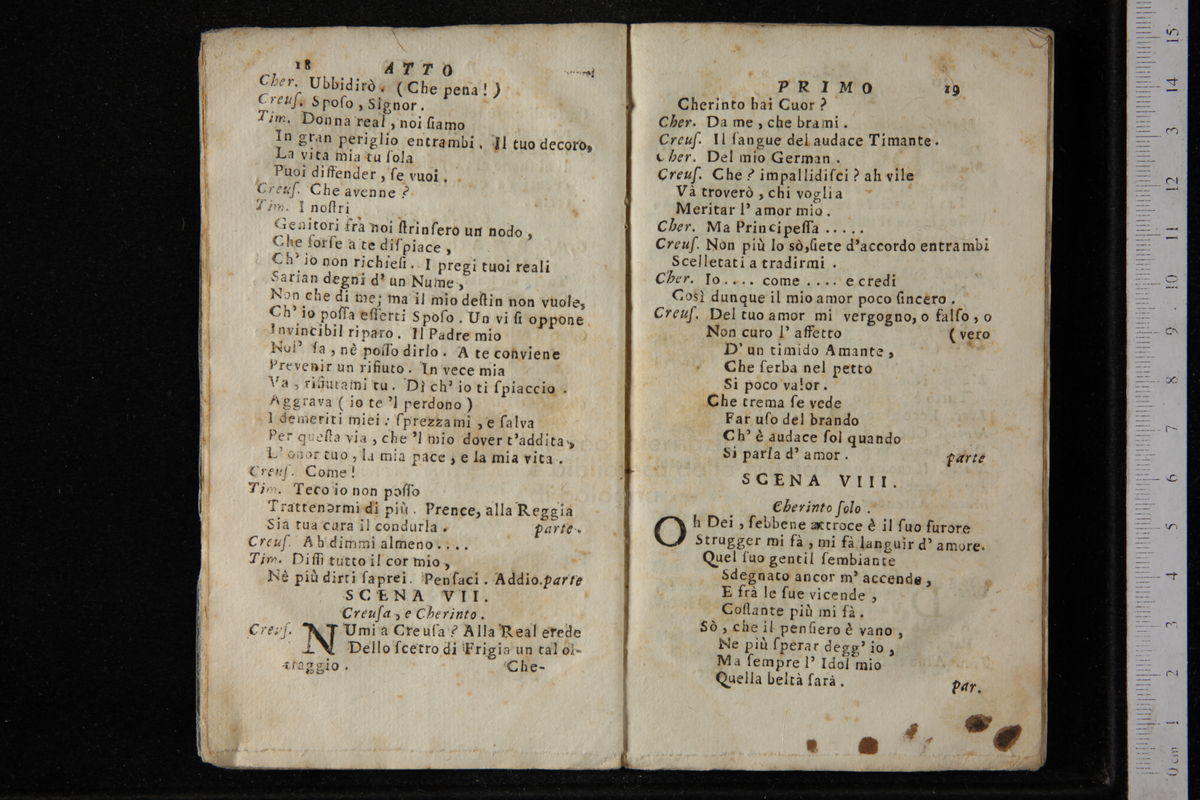 18 ATTO
Cher. Ubbidirò. (Che pena!)
Creuſ. Spoſo, Signor.
Tim. Donna real, noi ſiamo
In gran periglio entrambi. Il tuo decoro,
La vita mia tu ſola
Puoi diffender, ſe vuoi.
Creuſ. Che avenne?
Tim. I noſtri
Genitori frà noi ſtrinſero un nodo,
Che forſe a te diſpiace,
Ch' io non richieſi. I pregi tuoi reali
Sarian degni d' un Nume,
Non che di me; ma il mio deſtin non vuole,
Ch' io poſſa eſſerti Spoſo. Un vi ſi oppone
Invincibil riparo. Il Padre mio
Nol' ſa, nè poſſo dirlo. A te conviene
Prevenir un rifiuto. In vece mia
Va, rifiutami tu. Dì ch' io ti ſpiaccio.
Aggrava (io te 'l perdono)
I demeriti miei: ſprezzami, e ſalva
Per queſta via, che 'l mio dover t'addita,
L' onor tuo, la mia pace, e la mia vita.
Creuſ. Come!
Tim. Teco io non poſſo
Trattenermi di più. Prence, alla Reggia
Sia tua cura il condurla. parte.
Creuſ. Ah dimmi almeno....
Tim. Diſſi tutto il cor mio,
Nè più dirti ſaprei. Penſaci. Addio. parte
SCENA VII.
Creuſa, e Cherinto.
Creuſ. NUmi a Creuſa? Alla Real erede
Dello ſcetro di Frigia un tal ol-
traggio. Che-
PRIMO 19
Cherinto hai Cuor?
Cher. Da me, che brami.
Creuſ. Il ſangue del audace Timante.
Cher. Del mio German.
Creuſ. Che? impallidiſci? ah vile
Và troverò, chi voglia
Meritar l' amor mio.
Cher. Ma Principeſſa.....
Creuſ. Non più lo sò, ſiete d'accordo entrambi
Scelletati a tradirmi.
Cher. Io.... come.... e credi
Così dunque il mio amor poco ſincero.
Creuſ. Del tuo amor mi vergogno, o falſo, o
Non curo l' affetto (vero
D' un timido Amante,
Che ſerba nel petto
Si poco valor.
Che trema ſe vede
Far uſo del brando
Ch' è audace ſol quando
Si parla d' amor. parte
SCENA VIII.
Cherinto ſolo.
Oh Dei, ſebbene attroce è il ſuo furore
Strugger mi fà, mi fà languir d' amore.
Quel ſuo gentil ſembiante
Sdegnato ancor m' accende,
E frà le ſue vicende,
Coſtante più mi fà.
Sò, che il penſiero è vano,
Ne più ſperar degg' io,
Ma ſempre l' Idol mio
Quella beltà ſarà. par.